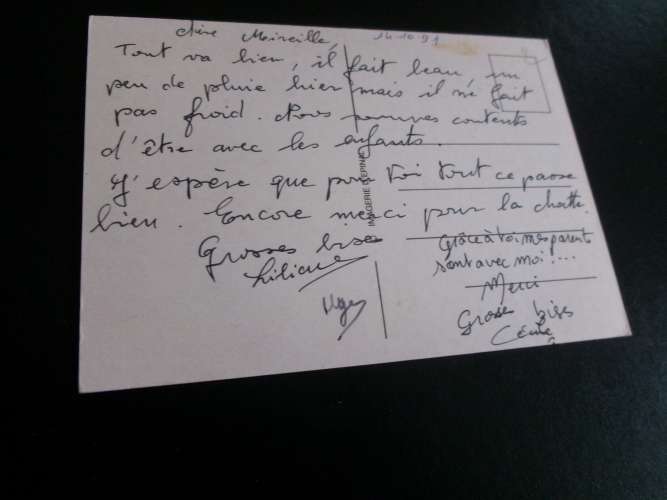 chère Mireille, 14.10.91
Tout va bien, il fait beau, un
peu de pluie hier mais il ne fait
pas froid. Nous sommes contents
d'être avec les enfants.
J'espère que pour toi tout ce passe
bien. Encore merci pour la chatte.
Grosses bises
Liliane
Grâce à toi mes parents
sont avec moi!...
Merci
Grosses bises
Cécile
IMAGERIE D'EPINAL